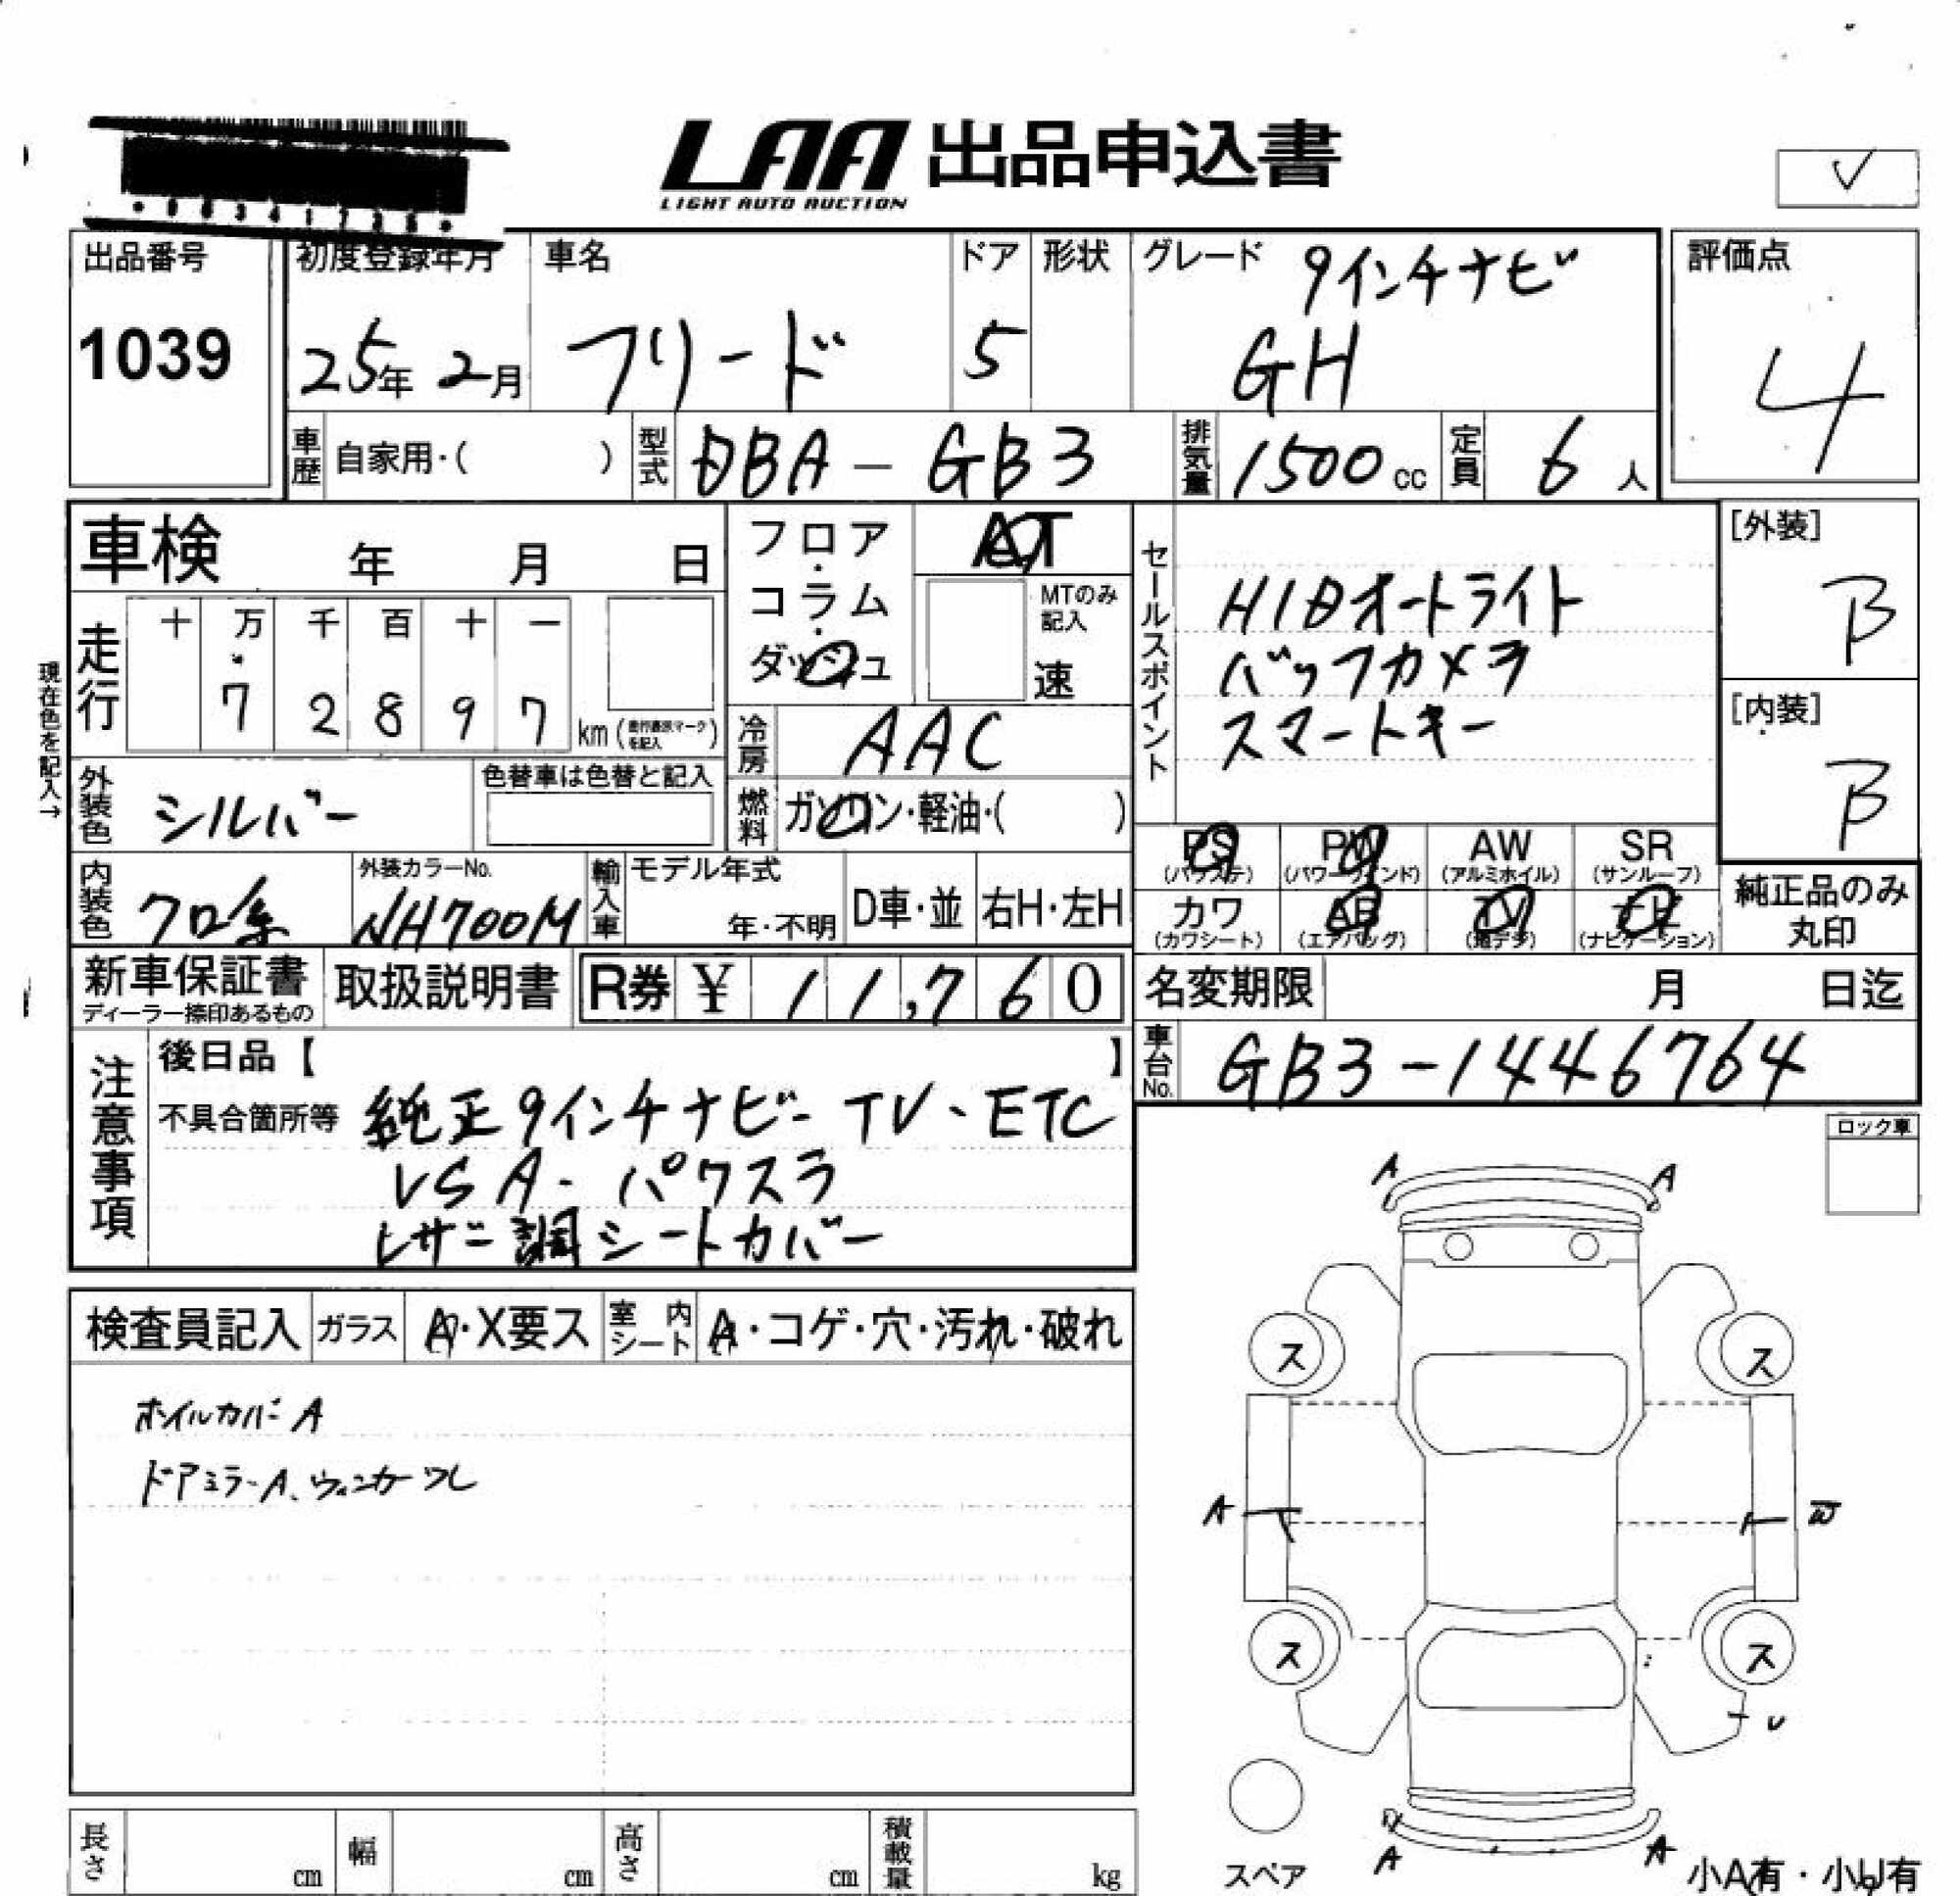 LAA 出品申込書
LIGHT AUTO AUCTION
✓
出品番号
1039
初度登録年月
25年 2月
車名
フリード
ドア
5
形状
グレード 9インチナビ
GH
評価点
4
車歴 自家用・( )
型式 DBA-GB3
排気量 1500 cc
定員 6 人
車検 年 月 日
フロア・コラム・ダッシュ
AT
MTのみ記入
速
セールスポイント
HIDオートライト
バックカメラ
スマートキー
[外装]
B
[内装]
B
現在色を記入→
走行 十 万 千 百 十 一
7 2 8 9 7 km (走行書換マークを記入)
冷房 AAC
外装色 シルバー
色替車は色替と記入
燃料 ガソリン・軽油・( )
PS (パワステ)
PW (パワーウインド)
AW (アルミホイル)
SR (サンルーフ)
カワ (カワシート)
AB (エアバッグ)
TV (地デジ)
ナビ (ナビゲーション)
純正品のみ丸印
内装色 クロ系
外装カラーNo. NH700M
輸入車 モデル年式 年・不明
D車・並
右H・左H
新車保証書
ディーラー捺印あるもの
取扱説明書
R券 ¥ 11,760
名変期限 月 日迄
車台No. GB3-1446764
注意事項
後日品【 】
不具合箇所等 純正9インチナビ- TV、ETC
VSA・パワスラ
レザー調シートカバー
ロック車
検査員記入
ガラス A・X要ス
室内シート A・コゲ・穴・汚れ・破れ
ホイルカバーA
ドアミラーA、ウィンカーワレ
A A
ス ス
A W
ス ス
U
A A
スペア
小A有・小U有
長さ cm
幅 cm
高さ cm
積載量 kg